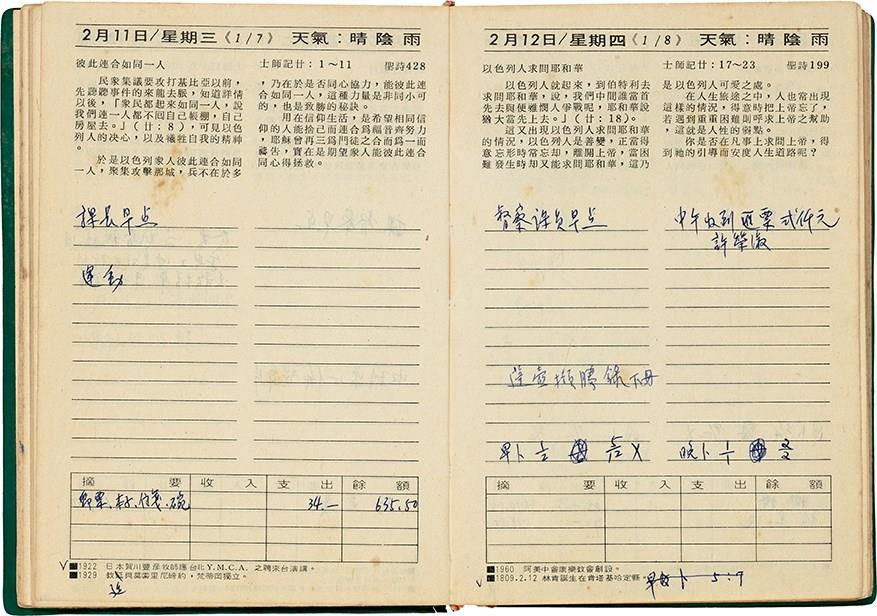 2月11日/星期三《1/7》 天氣：晴陰雨
彼此連合如同一人
民衆集議要攻打基比亞以前，
先聽聽事件的來龍去脈，知道詳情
以後，「衆民都起來如同一人，說
我們連一人都不回自己帳棚，自己
房屋去。」（廿：8），可見以色
列人的决心，以及犧牲自我的精神
。
於是以色列衆人彼此連合如同
一人，聚集攻擊那城，兵不在於多
士師記廿：1～11 聖詩428
，乃在於是否同心協力，能彼此連
合如同一人，這種力量是非同小可
的，也是致勝的秘訣。
用在信仰生活
仰的人能捨己
，耶穌曾再三爲門徒
禱告，實在是期望衆人能彼此連合
同心得拯救。
課長早点
運動
摘要 收入 支出 餘額
郵票 34.— 635.50
■1922 日本賀川豐彥牧師應台北Y.M.C.A. 之聘來台演講。
■1929 教廷與莫索里尼締約，梵蒂岡獨立。
2月12日/星期四《1/8》 天氣：晴陰雨
以色列人求問耶和華
以色列人就起來，到伯特利去
求問耶和華，說，我們中間誰當首
先去與便雅憫人爭戰呢，耶和華說
猶大當先上去。」（廿：18）。
這又出現以色列人求問耶和華
的情况，以色列人是善變，正當得
意忘形時常忘却，離開上帝，當困
難發生時却又能求問耶和華，這乃
士師記廿：17～23 聖詩199
是以色列人可愛之處。
在人生旅途之中，人也常出現
這樣的情況，得意時把上帝忘了，
若遇到重重困難則呼求上帝之幫助
，這就是人性的弱點。
你是否在凡事上求問上帝，得
到祂的引導而安度人生道路呢？
督察課員早点
中午收到匯票弍仟元
許榮淑
擷勝錄下冊
早卜
晚卜
摘要 收入 支出 餘額
■1960 阿美中會康樂教會創設。
■1809.2.12 林肯誕生在肯塔基哈定縣。